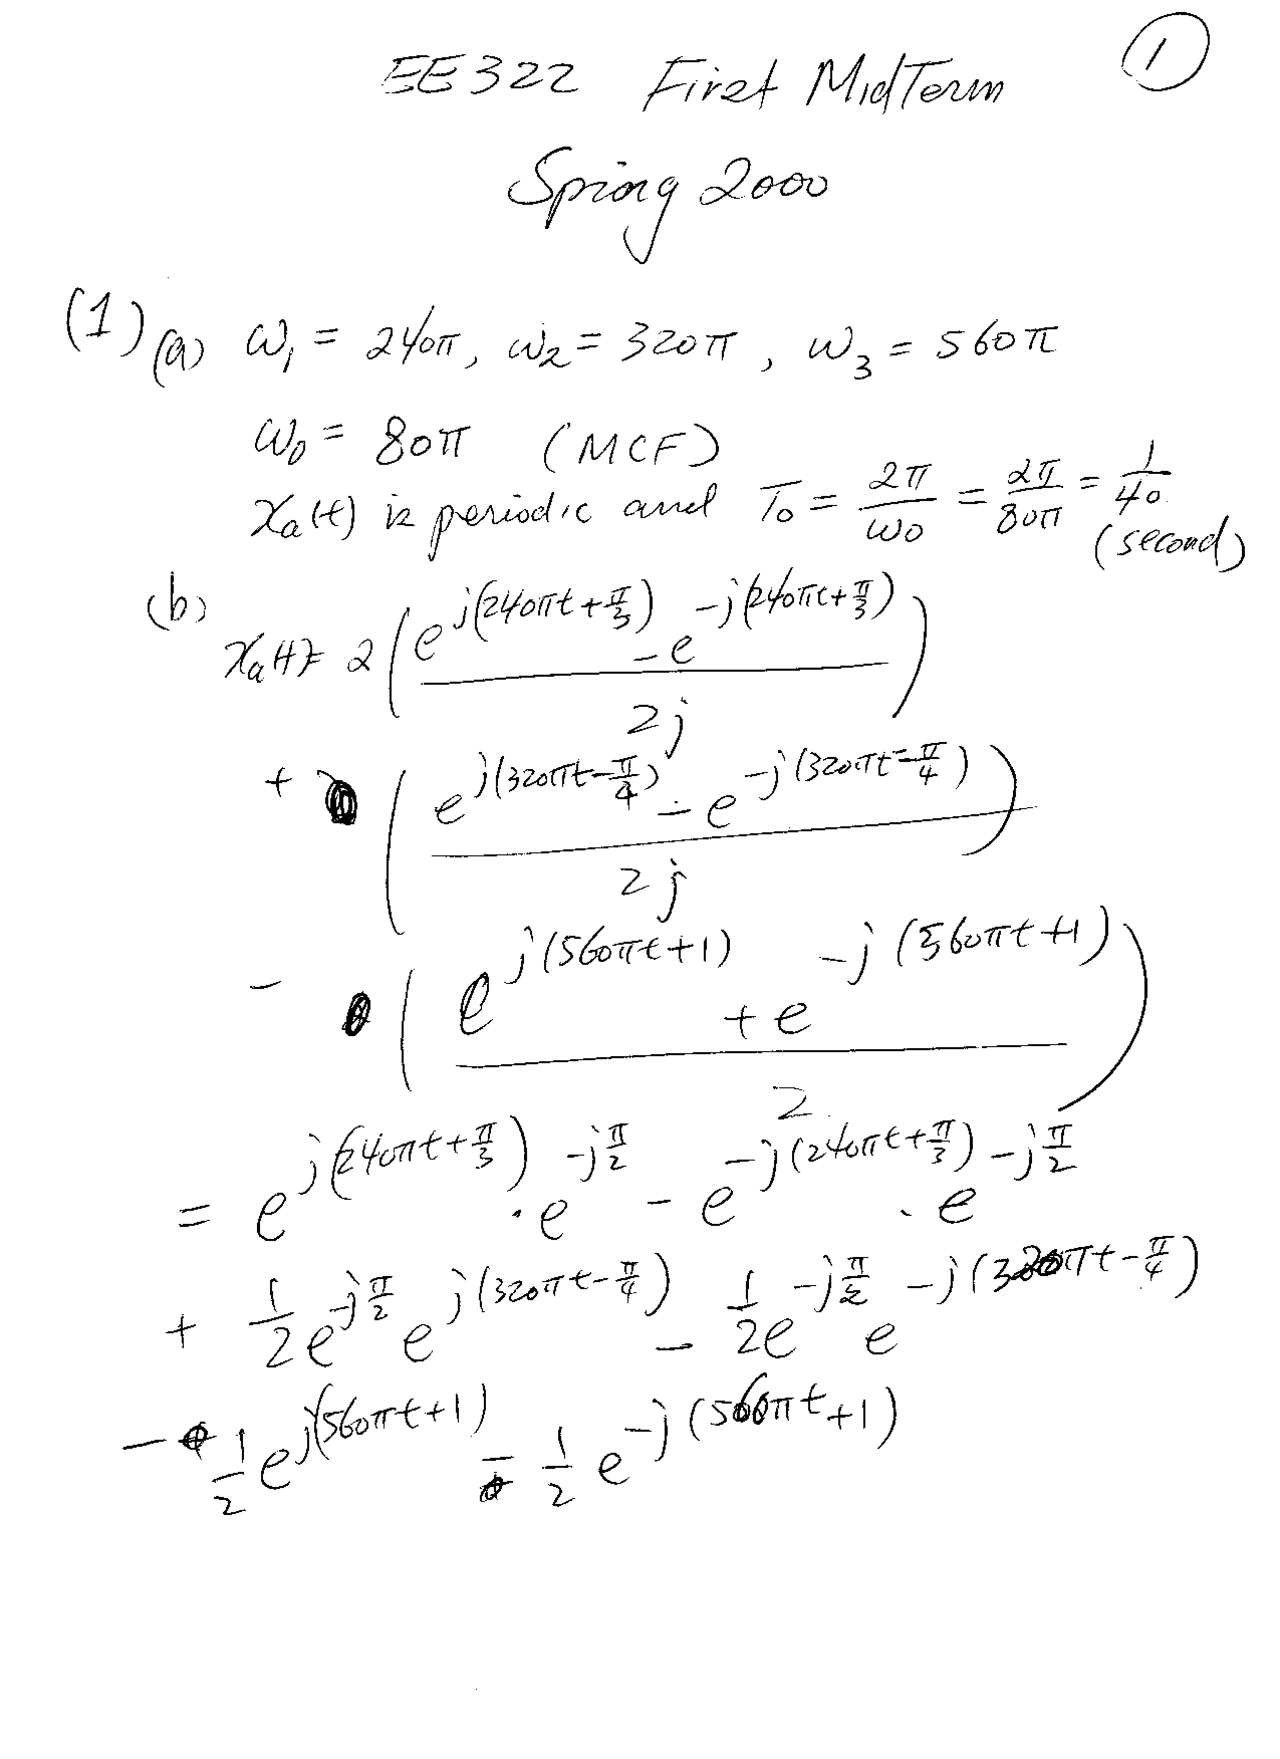 ①
EE322 First MidTerm
Spring 2000
(1) (a) ω₁ = 240π, ω₂ = 320π, ω₃ = 560π
ω₀ = 80π (MCF)
xₐ(t) is periodic and T₀ = 2π/ω₀ = 2π/80π = 1/40 (second)
(b)
xₐ(t) = 2 ( (e^{j(240πt + π/3)} - e^{-j(240πt + π/3)}) / 2j )
+ ( (e^{j(320πt - π/4)} - e^{-j(320πt - π/4)}) / 2j )
- ( (e^{j(560πt + 1)} + e^{-j(560πt + 1)}) / 2 )
= e^{j(240πt + π/3)} · e^{-jπ/2} - e^{-j(240πt + π/3)} · e^{-jπ/2}
+ 1/2 e^{-jπ/2} e^{j(320πt - π/4)} - 1/2 e^{-jπ/2} e^{-j(320πt - π/4)}
- 1/2 e^{j(560πt + 1)} - 1/2 e^{-j(560πt + 1)}